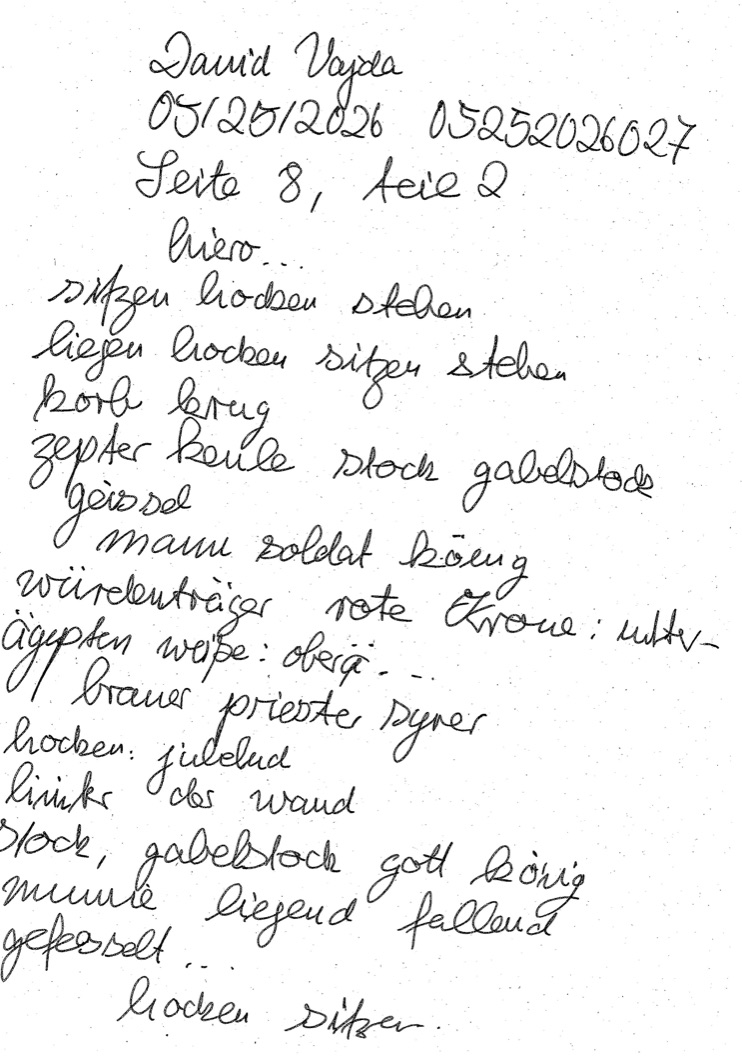 David Vajda
05/25/2026 05252026027
Seite 8, teil 2
hiero...
sitzen hocken stehen
liegen hocken sitzen stehen
korb krug
zepter keule stock gabelstock
geissel
mann soldat könig
würdenträger rote Krone: unter-
ägypten weiße: oberä...
brauer priester syrer
hocken: jubelnd
links der wand
stock, gabelstock gott könig
mumie liegend fallend
gefesselt...
hocken sitzen.